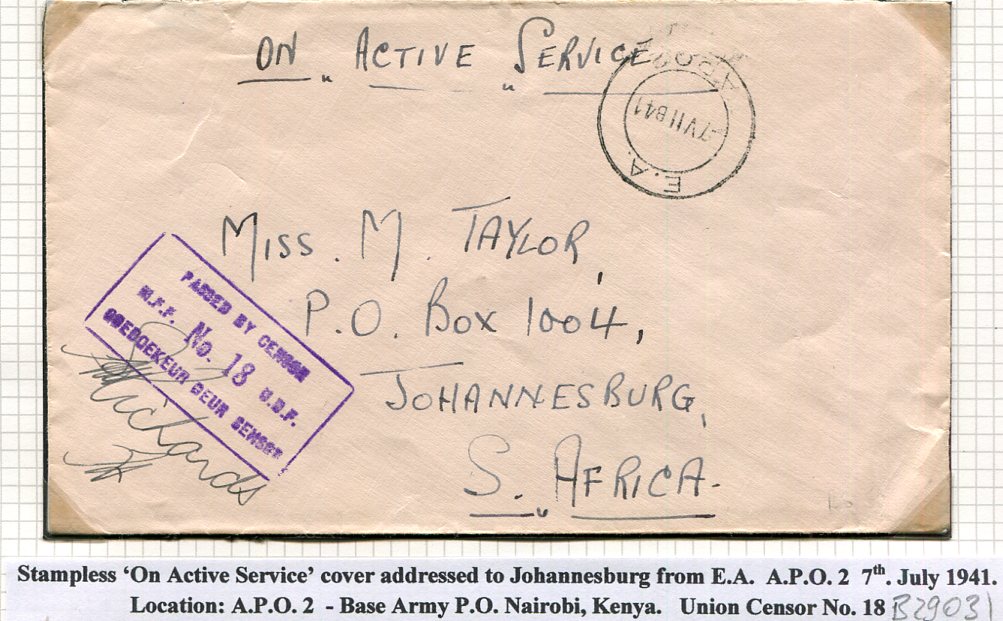 ON ACTIVE SERVICE
E.A.
-7 VII B41
MISS. M. TAYLOR,
P.O. BOX 1004,
JOHANNESBURG,
S. AFRICA.
PASSED BY CENSOR
M.F.F. No. 18 U.D.F.
GOEDGEKEUR DEUR SENSOR
Richards
Stampless ‘On Active Service’ cover addressed to Johannesburg from E.A. A.P.O. 2 7th. July 1941.
Location: A.P.O. 2 - Base Army P.O. Nairobi, Kenya. Union Censor No. 18 B29031